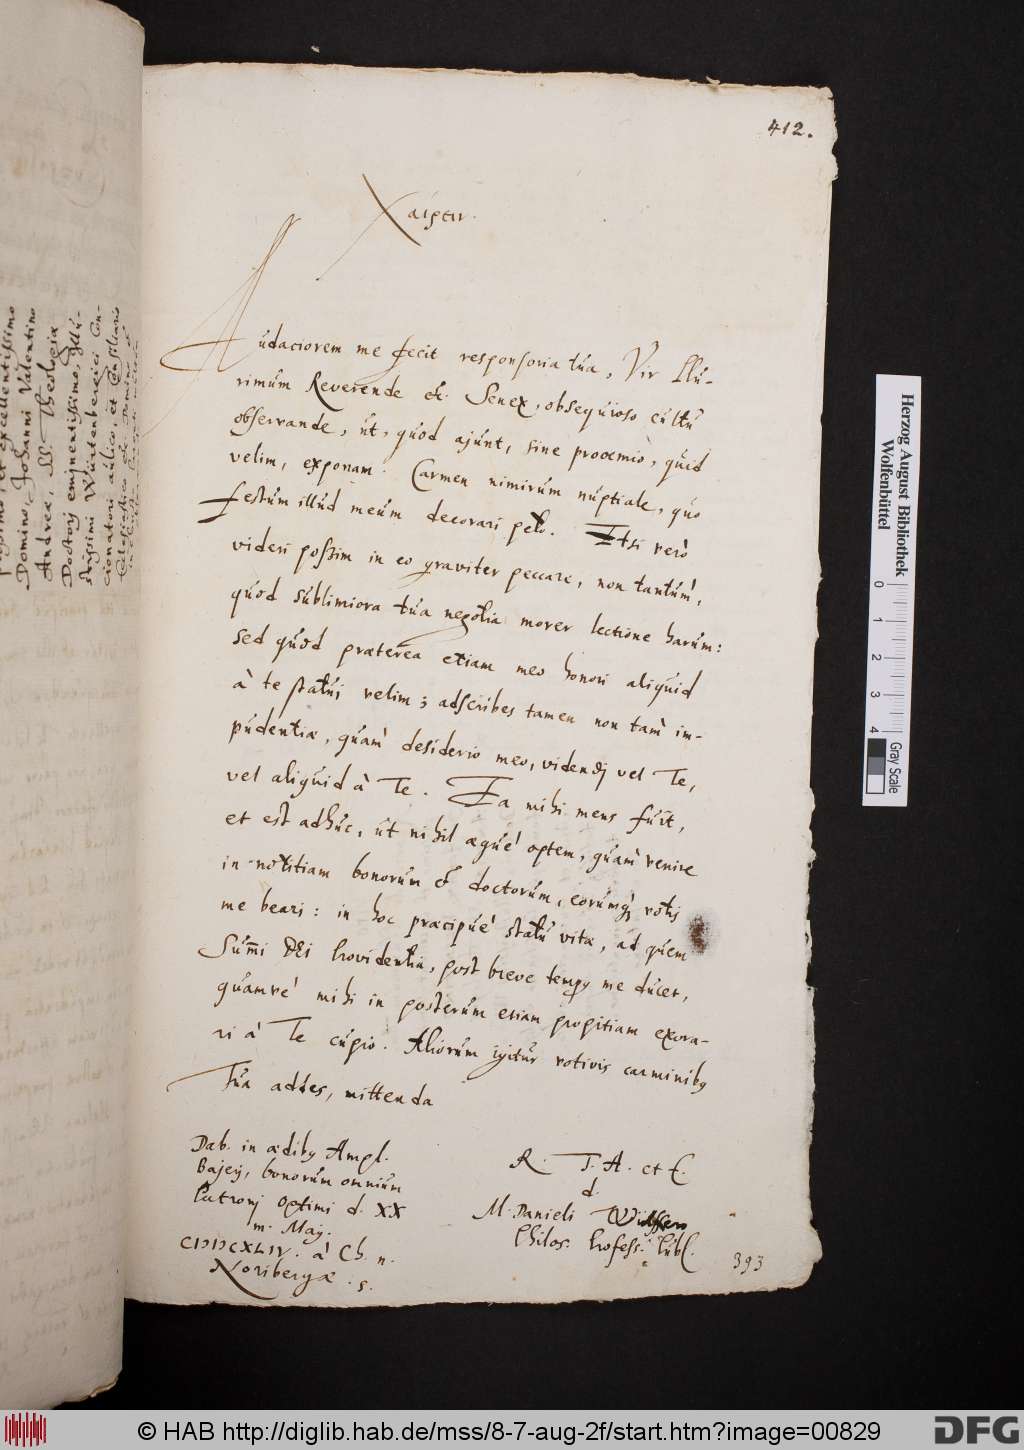 412.
Χαίρειν.
Audaciorem me fecit responsoria tua, Vir Illu-
rimum Reverende etc. Senex, obsequioso cultu
observande, ut, quod ajunt, sine prooemio, quid
velim, exponam. Carmen nimirum nuptiale, quo
festum illud meum decorari peto. Etsi verò
videri possim in eo graviter peccare, non tantùm,
quod sublimiora tua negotia movet lectione harum:
sed quod praeterea etiam meo honori aliquid
à te statui velim; adscribes tamen non tam im-
pudentiæ, quàm desiderio meo, videndi vel Te,
vel aliquid à Te. Ea mihi mens fuit,
et est adhuc, ut nihil æquè optem, quàm venire
in notitiam bonorum et doctorum, eorumq; votis
me beari: in hoc præcipuè statu vitæ, ad quem
Summi DEI Providentia, post breve tempus me ducet,
quamvè mihi in posterum etiam propitiam exora-
ri à Te cupio. Aliorum igitur votivis carminibus
Tua addes, mittenda
Dab. in ædibus Ampl.
Bajeri, bonorum omnium
Patroni optimi d. XX
m. Maij.
CIƆIƆCXLIV. à Ch. n.
Noribergæ. s.
R. T. A. et E.
d.
M. Danieli Wülffero
Philos. Profess. Publ.
393
Domino, Johanni Valentino
Andreæ, SS. Theologiæ
Doctori eminentissimo, Illu-
strissimi Würtenbergici Con-
cionatori aulico, et Consiliario
Herzog August Bibliothek
Wolfenbüttel
0 1 2 3 4
Gray Scale
© HAB http://diglib.hab.de/mss/8-7-aug-2f/start.htm?image=00829
DFG